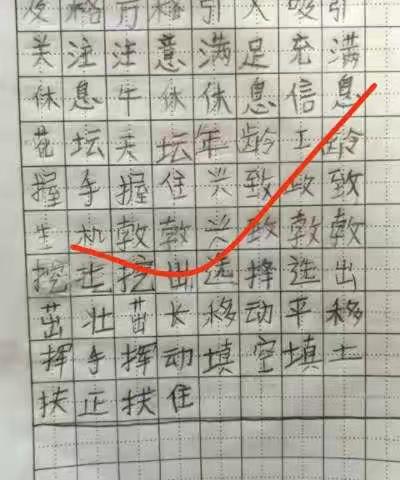 及格万格引入吸引
关注注意满足充满
休息午休休息信息
花坛天坛年龄工龄
握手握住兴致致
生机敦敦兴致敦敦
挖土挖出选择选出
茁壮茁长移动平移
挥手挥动填空填土
扶正扶住